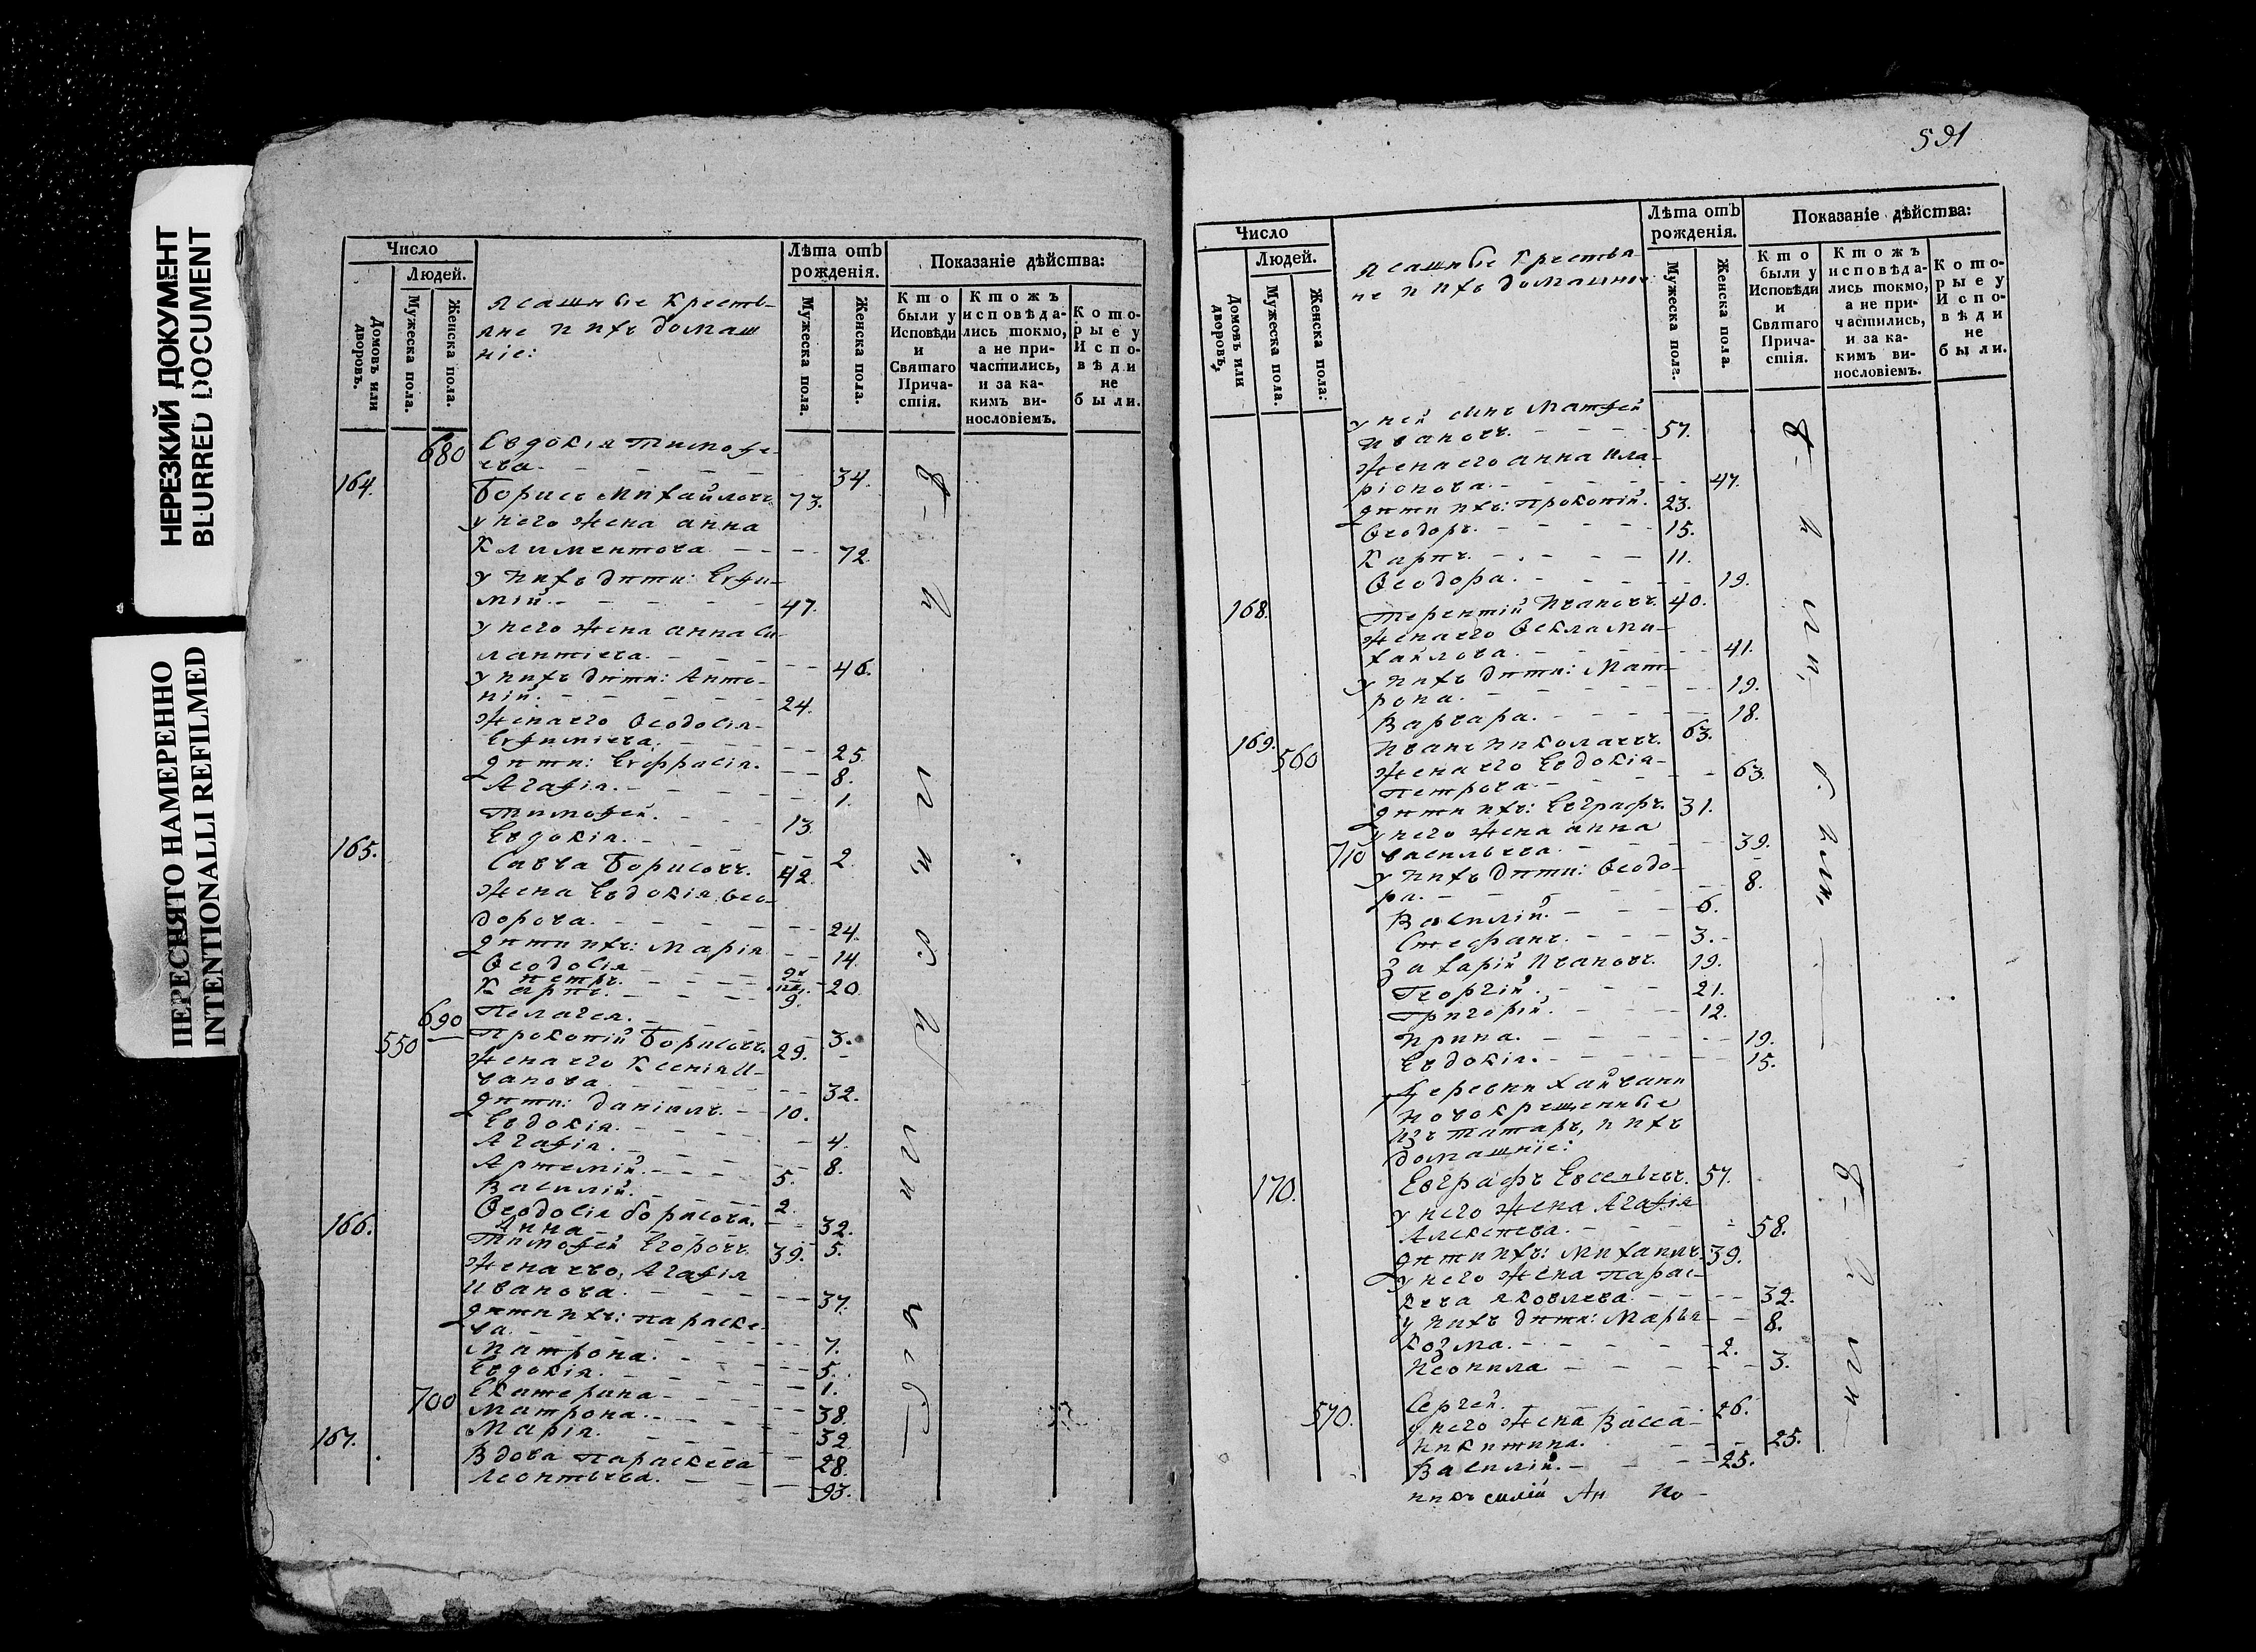 НЕРЕЗКИЙ ДОКУМЕНТ
BLURRED DOCUMENT
ПЕРЕСНЯТО НАМЕРЕННО
INTENTIONALLI REFILMED
Число
Людей.
Домовъ или дворовъ.
Мужеска пола.
Женска пола.
Ясашные кресть-
яне и ихъ домаш
ніе:
Лѣта отъ
рожденія.
Мужеска пола.
Женска пола.
Показаніе дѣйства:
Кто
были у
Исповѣди
и
Святаго
Прича-
стія.
Ктожъ
исповѣда-
лись токмо,
а не при-
частились,
и за ка-
кимъ ви-
нословіемъ.
Кото-
рые у
Испо-
вѣди
не
были.
680 Евдокія Тимофе-
ева. 34.
164. Борисъ Михайловъ 73.
у него жена Анна
Климентова 72.
у нихъ дѣти: Евфи-
мій. 47.
у него жена Анна
46.
у нихъ дѣти: Анто-
ній. 24.
жена его Ѳеодосія
Евфиміева. 25.
дѣти: Евфрасія. 8.
Агафія. 1.
Тимофей. 13.
Евдокія. 2.
165. Савва Борисовъ. 42.
жена Евдокія Ѳео-
дорова. 24.
дѣти ихъ: Марія 14.
Ѳеодосія 20.
Петръ.
Карпъ. 9.
690 Пелагея. 3.
550 Прокопій Борисовъ. 29.
жена его Ксенія И-
ванова 32.
дѣти: Даніилъ. 10.
Евдокія. 4.
Агафія. 8.
Артемій. 5.
Василій. 2.
Ѳеодосія Борисова. 32.
Анна 5.
166. Тимофей Егоровъ 39.
жена его Агафія
Иванова. 37.
дѣти ихъ: Параске-
ва. 7.
Матрона. 5.
Евдокія. 1.
700 Екатерина 38.
Матрона. 32.
Марія. 28.
167. Вдова Параскева
Леонтьева. 93.
591
Число
Людей.
Домовъ или дворовъ.
Мужеска пола.
Женска пола:
Ясашные крестья
не и ихъ домашніе:
Лѣта отъ
рожденія.
Мужеска пола.
Женска пола.
Показаніе дѣйства:
Кто
были у
Исповѣди
и
Святаго
Прича-
стія.
Ктожъ
исповѣда-
лись токмо,
а не при-
частились,
и за ка-
кимъ ви-
нословіемъ.
Кото-
рые у
Испо-
вѣди
не
были.
у ней сынъ Матфей
Ивановъ. 57.
жена его Анна Ила-
ріонова. 47.
дѣти ихъ: Прокопій. 23.
Ѳеодоръ. 15.
Карпъ. 11.
Ѳеодора. 19.
168. Терентій Ивановъ. 40.
жена его Ѳекла Ми-
хайлова. 41.
у нихъ дѣти: Мат-
рона. 19.
Варвара. 18.
169. 560 Иванъ Николаевъ. 63.
жена его Евдокія
Петрова. 63.
дѣти ихъ: Евграфъ. 31.
у него жена Анна
710 Васильева. 39.
у нихъ дѣти: Ѳеодо-
ра. 8.
Василій. 6.
Стефанъ. 3.
Захарій Ивановъ. 19.
Георгій. 21.
Григорій. 12.
Ирина. 19.
Евдокія. 15.
Деревни Хайвани
новокрещенные
изъ татаръ, и ихъ
домашніе:
170. Евграфъ Евсеевъ. 57.
у него жена Агафія
Алексѣева. 58.
дѣти ихъ: Михаилъ. 39.
у него жена Парас-
кева Яковлева. 32.
у нихъ дѣти: Марья 8.
Козма. 2.
Неонила 3.
570. Сергей. 26.
у него жена Васса
Никитина. 25.
Василій. 25.